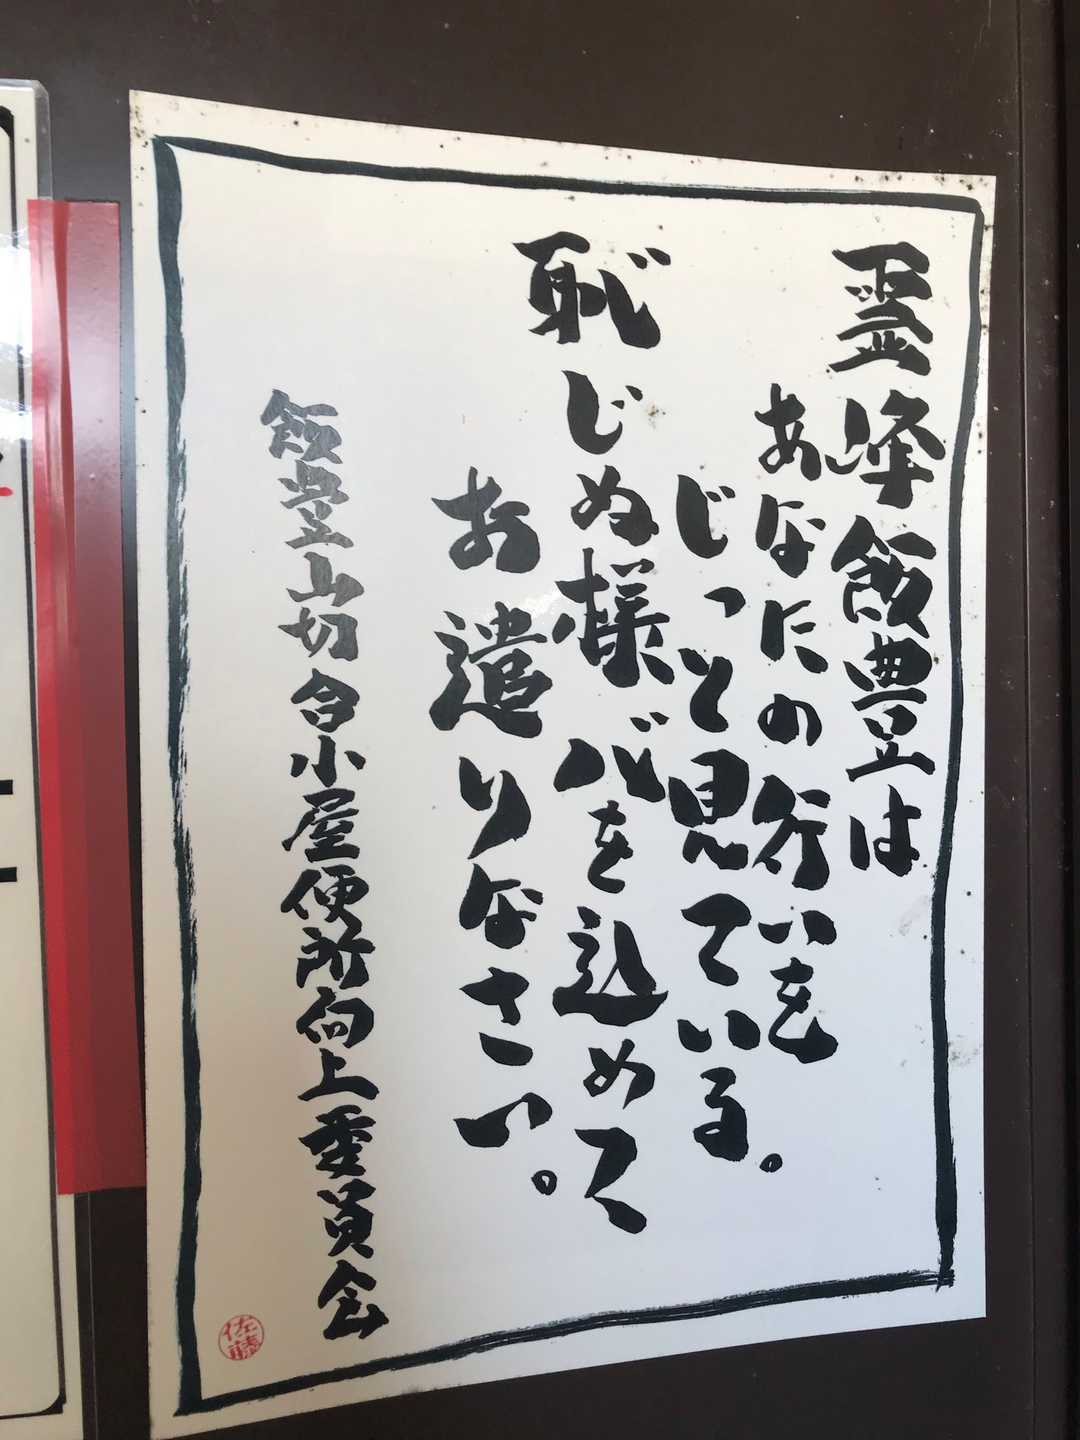 霊峰飯豊は
あなたの行いを
じっと見ている。
恥じぬ様心を込めて
お遣りなさい。
飯豊山切合小屋便所向上委員会
佐藤